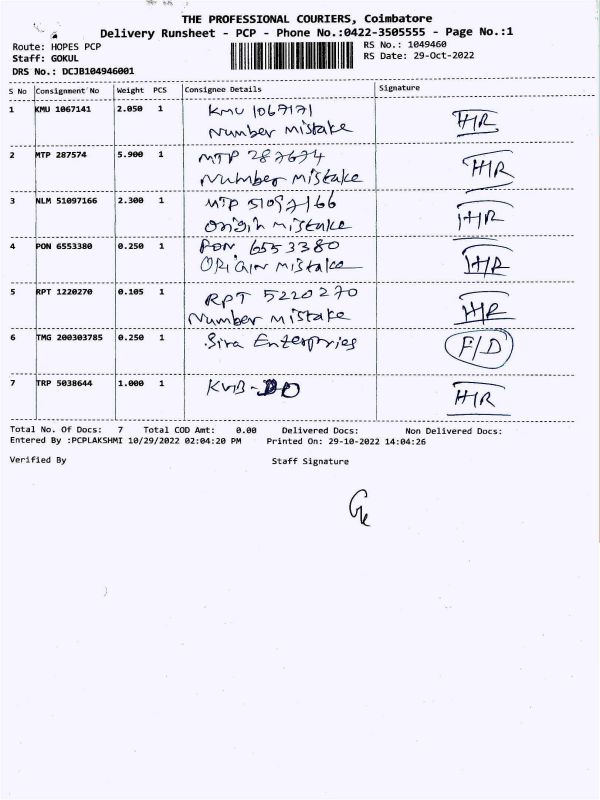 THE PROFESSIONAL COURIERS, Coimbatore
Delivery Runsheet - PCP - Phone No.:0422-3505555 - Page No.:1
Route: HOPES PCP
RS No.: 1049460
Staff: GOKUL
RS Date: 29-Oct-2022
DRS No.: DCJB104946001
S No Consignment No Weight PCS Consignee Details Signature
1 KMU 1067141 2.050 1 KMU 1067171 H/R
Number mistake
2 MTP 287574 5.900 1 MTP 287674 H/R
Number mistake
3 NLM 51097166 2.300 1 MTP 51097166 H/R
Origin mistake
4 PON 6553380 0.250 1 PON 6553380 H/R
ORiGin mistake
5 RPT 1220270 0.105 1 RPT 5220270 H/R
Number mistake
6 TMG 200303785 0.250 1 Siva Enterpries F/D
7 TRP 5038644 1.000 1 KVB- H/R
Total No. Of Docs: 7 Total COD Amt: 0.00 Delivered Docs: Non Delivered Docs:
Entered By :PCPLAKSHMI 10/29/2022 02:04:20 PM Printed On: 29-10-2022 14:04:26
Verified By Staff Signature